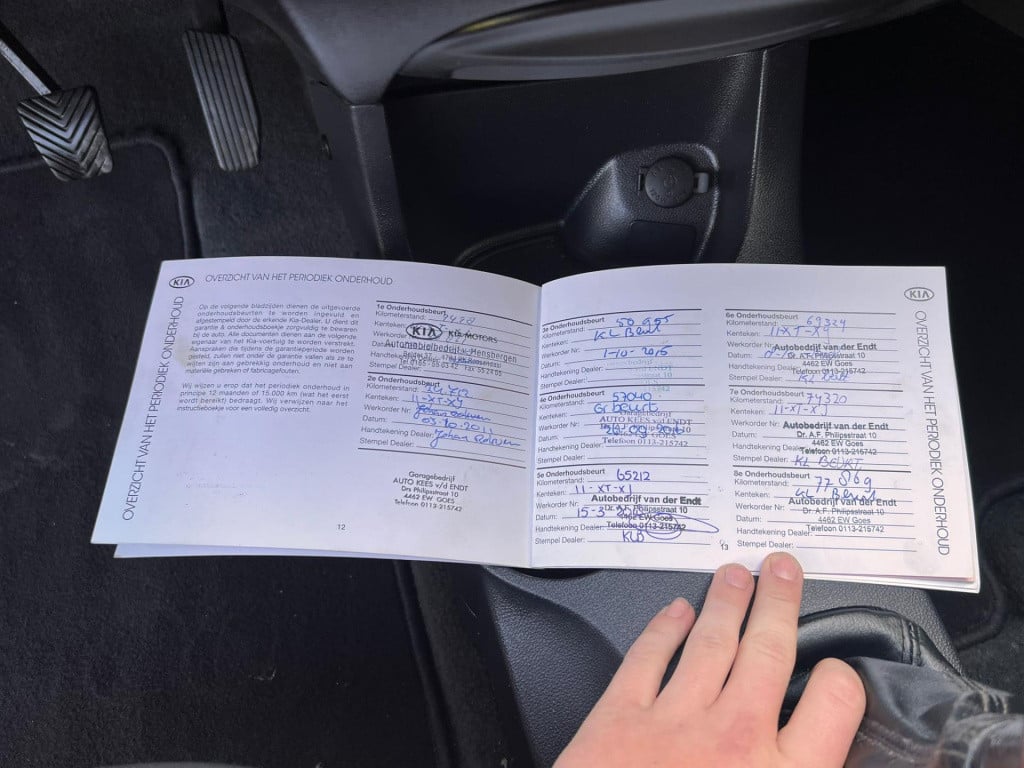 KIA OVERZICHT VAN HET PERIODIEK ONDERHOUD
OVERZICHT VAN HET PERIODIEK ONDERHOUD
Op de volgende bladzijden dienen de uitgevoerde
onderhoudsbeurten te worden ingevuld en
afgestempeld door de erkende Kia-Dealer. U dient dit
garantie & onderhoudsboekje zorgvuldig te bewaren
bij de auto. Alle documenten dienen aan de volgende
eigenaar van het Kia-voertuig te worden verstrekt.
Aanspraken die tijdens de garantieperiode worden
gesteld, zullen niet onder de garantie vallen als ze te
wijten zijn aan gebrekkig onderhoud en niet aan
materiële gebreken of fabricagefouten.
Wij wijzen u erop dat het periodiek onderhoud in
principe 12 maanden of 15.000 km (wat het eerst
wordt bereikt) bedraagt. Wij verwijzen naar het
instructieboekje voor een volledig overzicht.
12
1e Onderhoudsbeurt
Kilometerstand:
Kenteken:
KIA KIA MOTORS
Werkorder
Automobielbedrijf v. Hensbergen
Datum:
Handtekening
Stempel Dealer:
2e Onderhoudsbeurt
Kilometerstand:
Kenteken: 11-XT-XJ
Werkorder Nr:
Datum: 03.10.2011
Handtekening Dealer:
Stempel Dealer:
Garagebedrijf
AUTO KEES v/d ENDT
Drs Philipsstraat 10
4462 EW GOES
Telefoon 0113-215742
3e Onderhoudsbeurt
Kilometerstand: 50.955
Kenteken: KL Beurt
Werkorder Nr:
Datum: 1-10-2015
Handtekening Dealer:
Stempel Dealer:
4e Onderhoudsbeurt
Kilometerstand: 57040
Kenteken: Gr beurt
Werkorder Nr:
AUTO KEES v/d ENDT
Datum:
Handtekening Dealer: Telefoon 0113-215742
Stempel Dealer:
5e Onderhoudsbeurt
Kilometerstand: 65212
Kenteken: 11-XT-XJ
Werkorder Nr: Autobedrijf van der Endt
Dr. A.F. Philipsstraat 10
Datum: 15-3 4462 EW Goes
Handtekening Dealer: Telefoon 0113-215742
Stempel Dealer: KLB
13
KIA
OVERZICHT VAN HET PERIODIEK ONDERHOUD
6e Onderhoudsbeurt
Kilometerstand: 69324
Kenteken: 11-XT-XJ
Werkorder Nr: Autobedrijf van der Endt
Dr. A.F. Philipsstraat 10
Datum: 4462 EW Goes
Handtekening Dealer: Telefoon 0113-215742
Stempel Dealer:
7e Onderhoudsbeurt
Kilometerstand: 74320
Kenteken: 11-XT-XJ
Werkorder Nr: Autobedrijf van der Endt
Dr. A.F. Philipsstraat 10
Datum: 4462 EW Goes
Handtekening Dealer: Telefoon 0113-215742
Stempel Dealer: KL BEURT
8e Onderhoudsbeurt
Kilometerstand: 77 869
Kenteken: KL Beurt
Werkorder Nr: Autobedrijf van der Endt
Dr. A.F. Philipsstraat 10
Datum: 4462 EW Goes
Handtekening Dealer: Telefoon 0113-215742
Stempel Dealer: